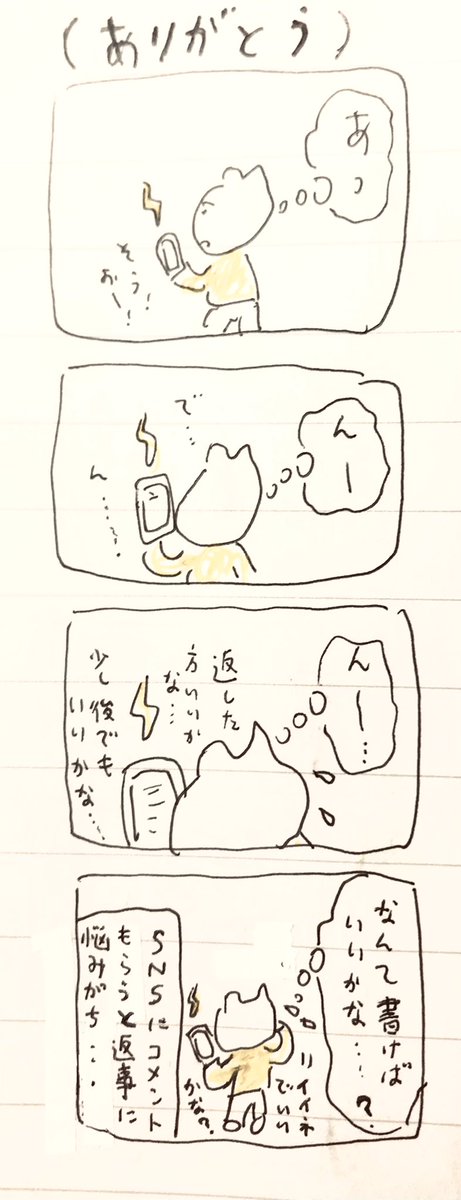 (ありがとう)
あっ
そう!
おー!
んー
で…
ん……
んー…
返した
方いいか
な…
少し後でも
いいかな…
なんて書けば
いいかな…?
リイイネ
でいい
かな?
SNSにコメント
もらうと返事に
悩みがち…